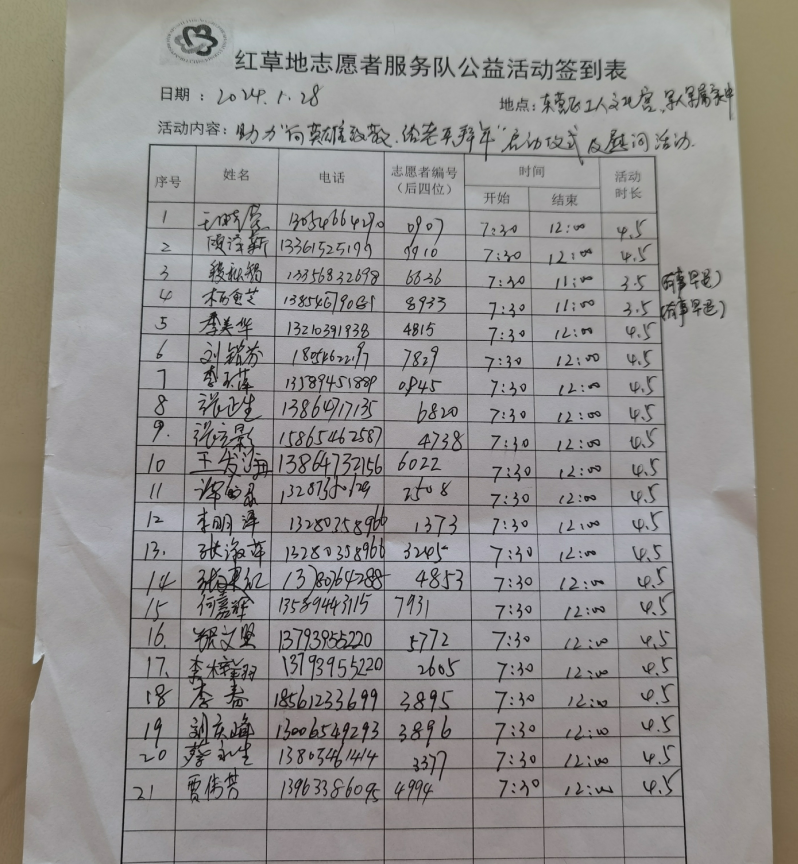 红草地志愿者服务队公益活动签到表
日期：2024.1.28
地点：东营区工人文化宫、军人军属家中
活动内容：助力"向英雄致敬、给老兵拜年"启动仪式及慰问活动
序号 姓名 电话 志愿者编号（后四位） 时间 开始 结束 活动时长
1 13054664290 0907 7:30 12:00 4.5
2 13361525199 9910 7:30 12:00 4.5
3 13356832698 6636 7:30 11:00 3.5 (有事早退)
4 8933 7:30 11:00 3.5 (有事早退)
5 李美华 13210391938 4815 7:30 12:00 4.5
6 刘铭芬 7829 7:30 12:00 4.5
7 李玉萍 13589451889 0845 7:30 12:00 4.5
8 张正生 13864717135 6820 7:30 12:00 4.5
9. 15865462587 4738 7:30 12:00 4.5
10 王发海 13864732156 6022 7:30 12:00 4.5
11 2508 7:30 12:00 4.5
12 李明泽 13280358966 1373 7:30 12:00 4.5
13. 张海萍 13280358966 3245 7:30 12:00 4.5
14 13780764288 4853 7:30 12:00 4.5
15 何嘉辉 13589443115 7931 7:30 12:00 4.5
16. 13793955220 5772 7:30 12:00 4.5
17. 13793955220 2605 7:30 12:00 4.5
18 李春 18561233699 3895 7:30 12:00 4.5
19 刘庆峰 13006549293 3896 7:30 12:00 4.5
20 蔡永生 13805461414 3377 7:30 12:00 4.5
21 贾伟芳 13963386095 4994 7:30 12:00 4.5